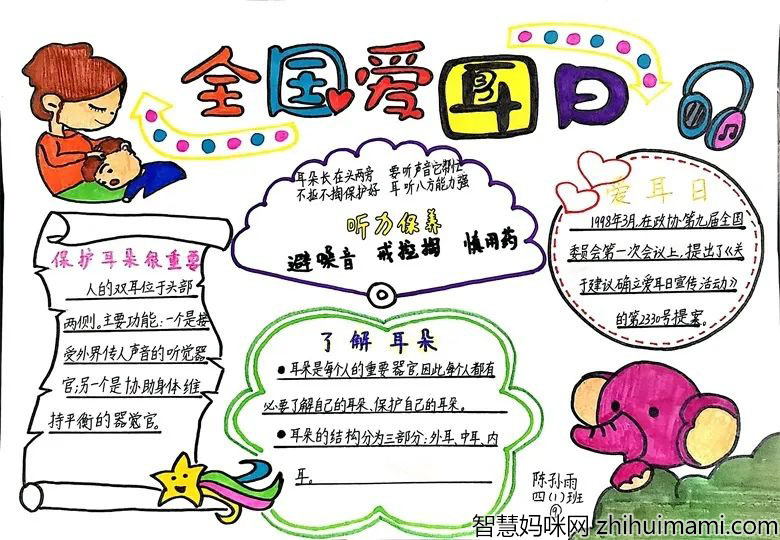 全国爱耳日
3.3
耳朵长在头两旁 要听声音它帮忙
不扯不掏保护好 耳听八方能力强
听力保养
避噪音 戒挖掏 慎用药
爱耳日
1998年3月,在政协第九届全国
委员会第一次会议上,提出了《关
于建议确立爱耳日宣传活动》
的第2330号提案。
保护耳朵很重要
人的双耳位于头部
两侧。主要功能:一个是接
受外界传入声音的听觉器
官;另一个是协助身体维
持平衡的器觉官。
了解耳朵
●耳朵是每个人的重要器官,因此,每个人都有
必要了解自己的耳朵、保护自己的耳朵。
●耳朵的结构分为三部分:外耳、中耳、内
耳。
陈孙雨
四(1)班
⑨
智慧妈咪网 zhihuimami.com